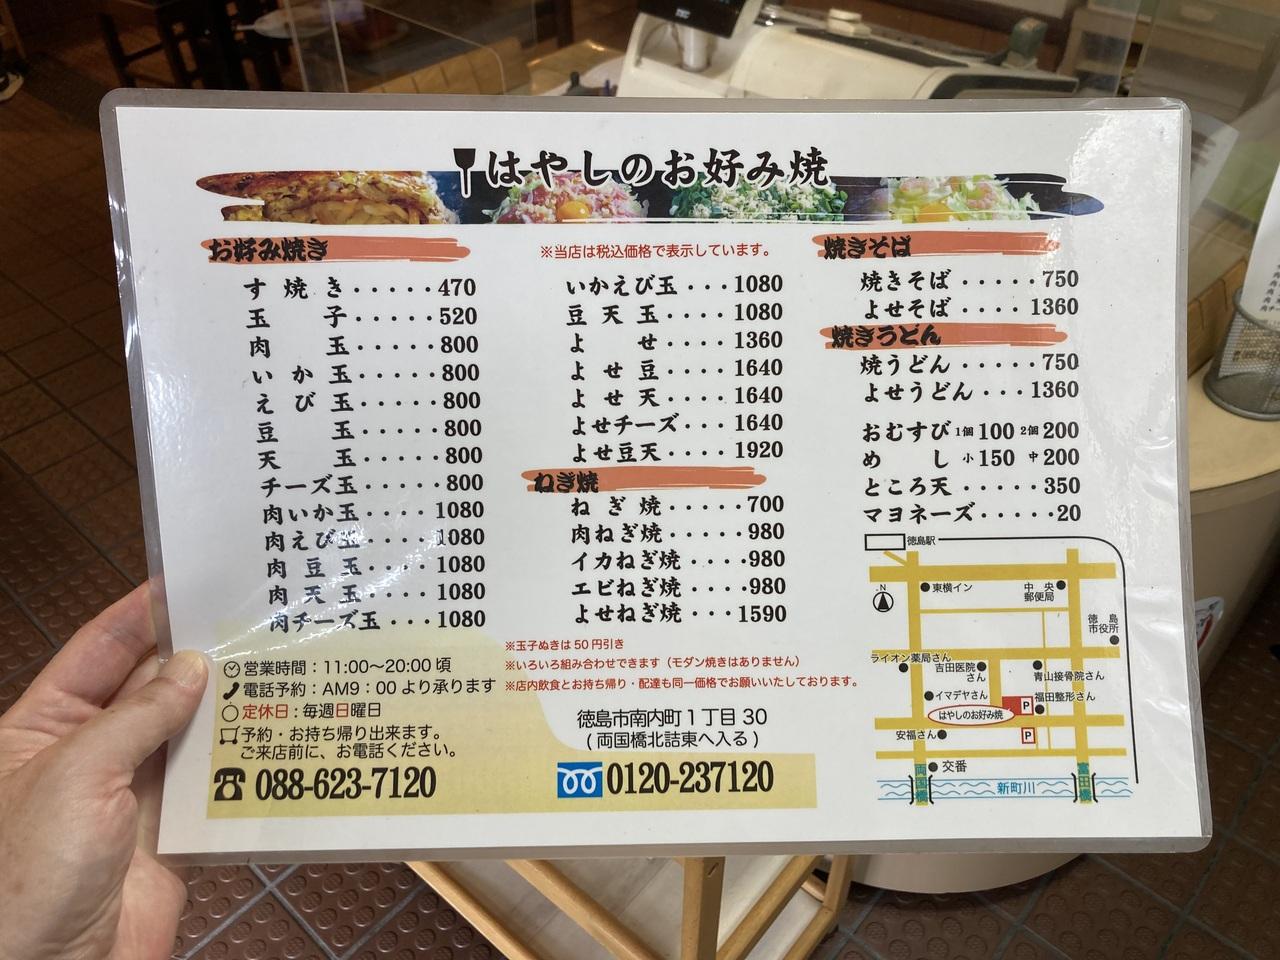 はやしのお好み焼
お好み焼き
す焼き・・・・・470
玉子・・・・・520
肉玉・・・・・800
いか玉・・・・・800
えび玉・・・・・800
豆玉・・・・・800
天玉・・・・・800
チーズ玉・・・・・800
肉いか玉・・・・1080
肉えび玉・・・・1080
肉豆玉・・・・1080
肉天玉・・・・1080
肉チーズ玉・・・1080
※当店は税込価格で表示しています。
いかえび玉・・・1080
豆天玉・・・・1080
よせ・・・・1360
よせ豆・・・・1640
よせ天・・・・1640
よせチーズ・・・1640
よせ豆天・・・・1920
ねぎ焼
ねぎ焼・・・・・700
肉ねぎ焼・・・・980
イカねぎ焼・・・・980
エビねぎ焼・・・・980
よせねぎ焼・・・1590
焼きそば
焼きそば・・・・・750
よせそば・・・・1360
焼きうどん
焼うどん・・・・・750
よせうどん・・・1360
おむすび 1個 100 2個 200
めし 小 150 中 200
ところ天・・・・・350
マヨネーズ・・・・・20
※玉子ぬきは50円引き
※いろいろ組み合わせできます（モダン焼きはありません）
※店内飲食とお持ち帰り・配達も同一価格でお願いいたしております。
営業時間：11:00〜20:00 頃
電話予約：AM9：00 より承ります
定休日：毎週日曜日
予約・お持ち帰り出来ます。
ご来店前に、お電話ください。
088-623-7120
徳島市南内町１丁目30
(両国橋北詰東へ入る)
0120-237120
徳島駅
N
東横イン
中央
郵便局
徳島
市役所
ライオン薬局さん
吉田医院
さん
青山接骨院さん
イマデヤさん
福田整形さん
P
はやしのお好み焼
安福さん
P
交番
両国橋
新町川
富田橋